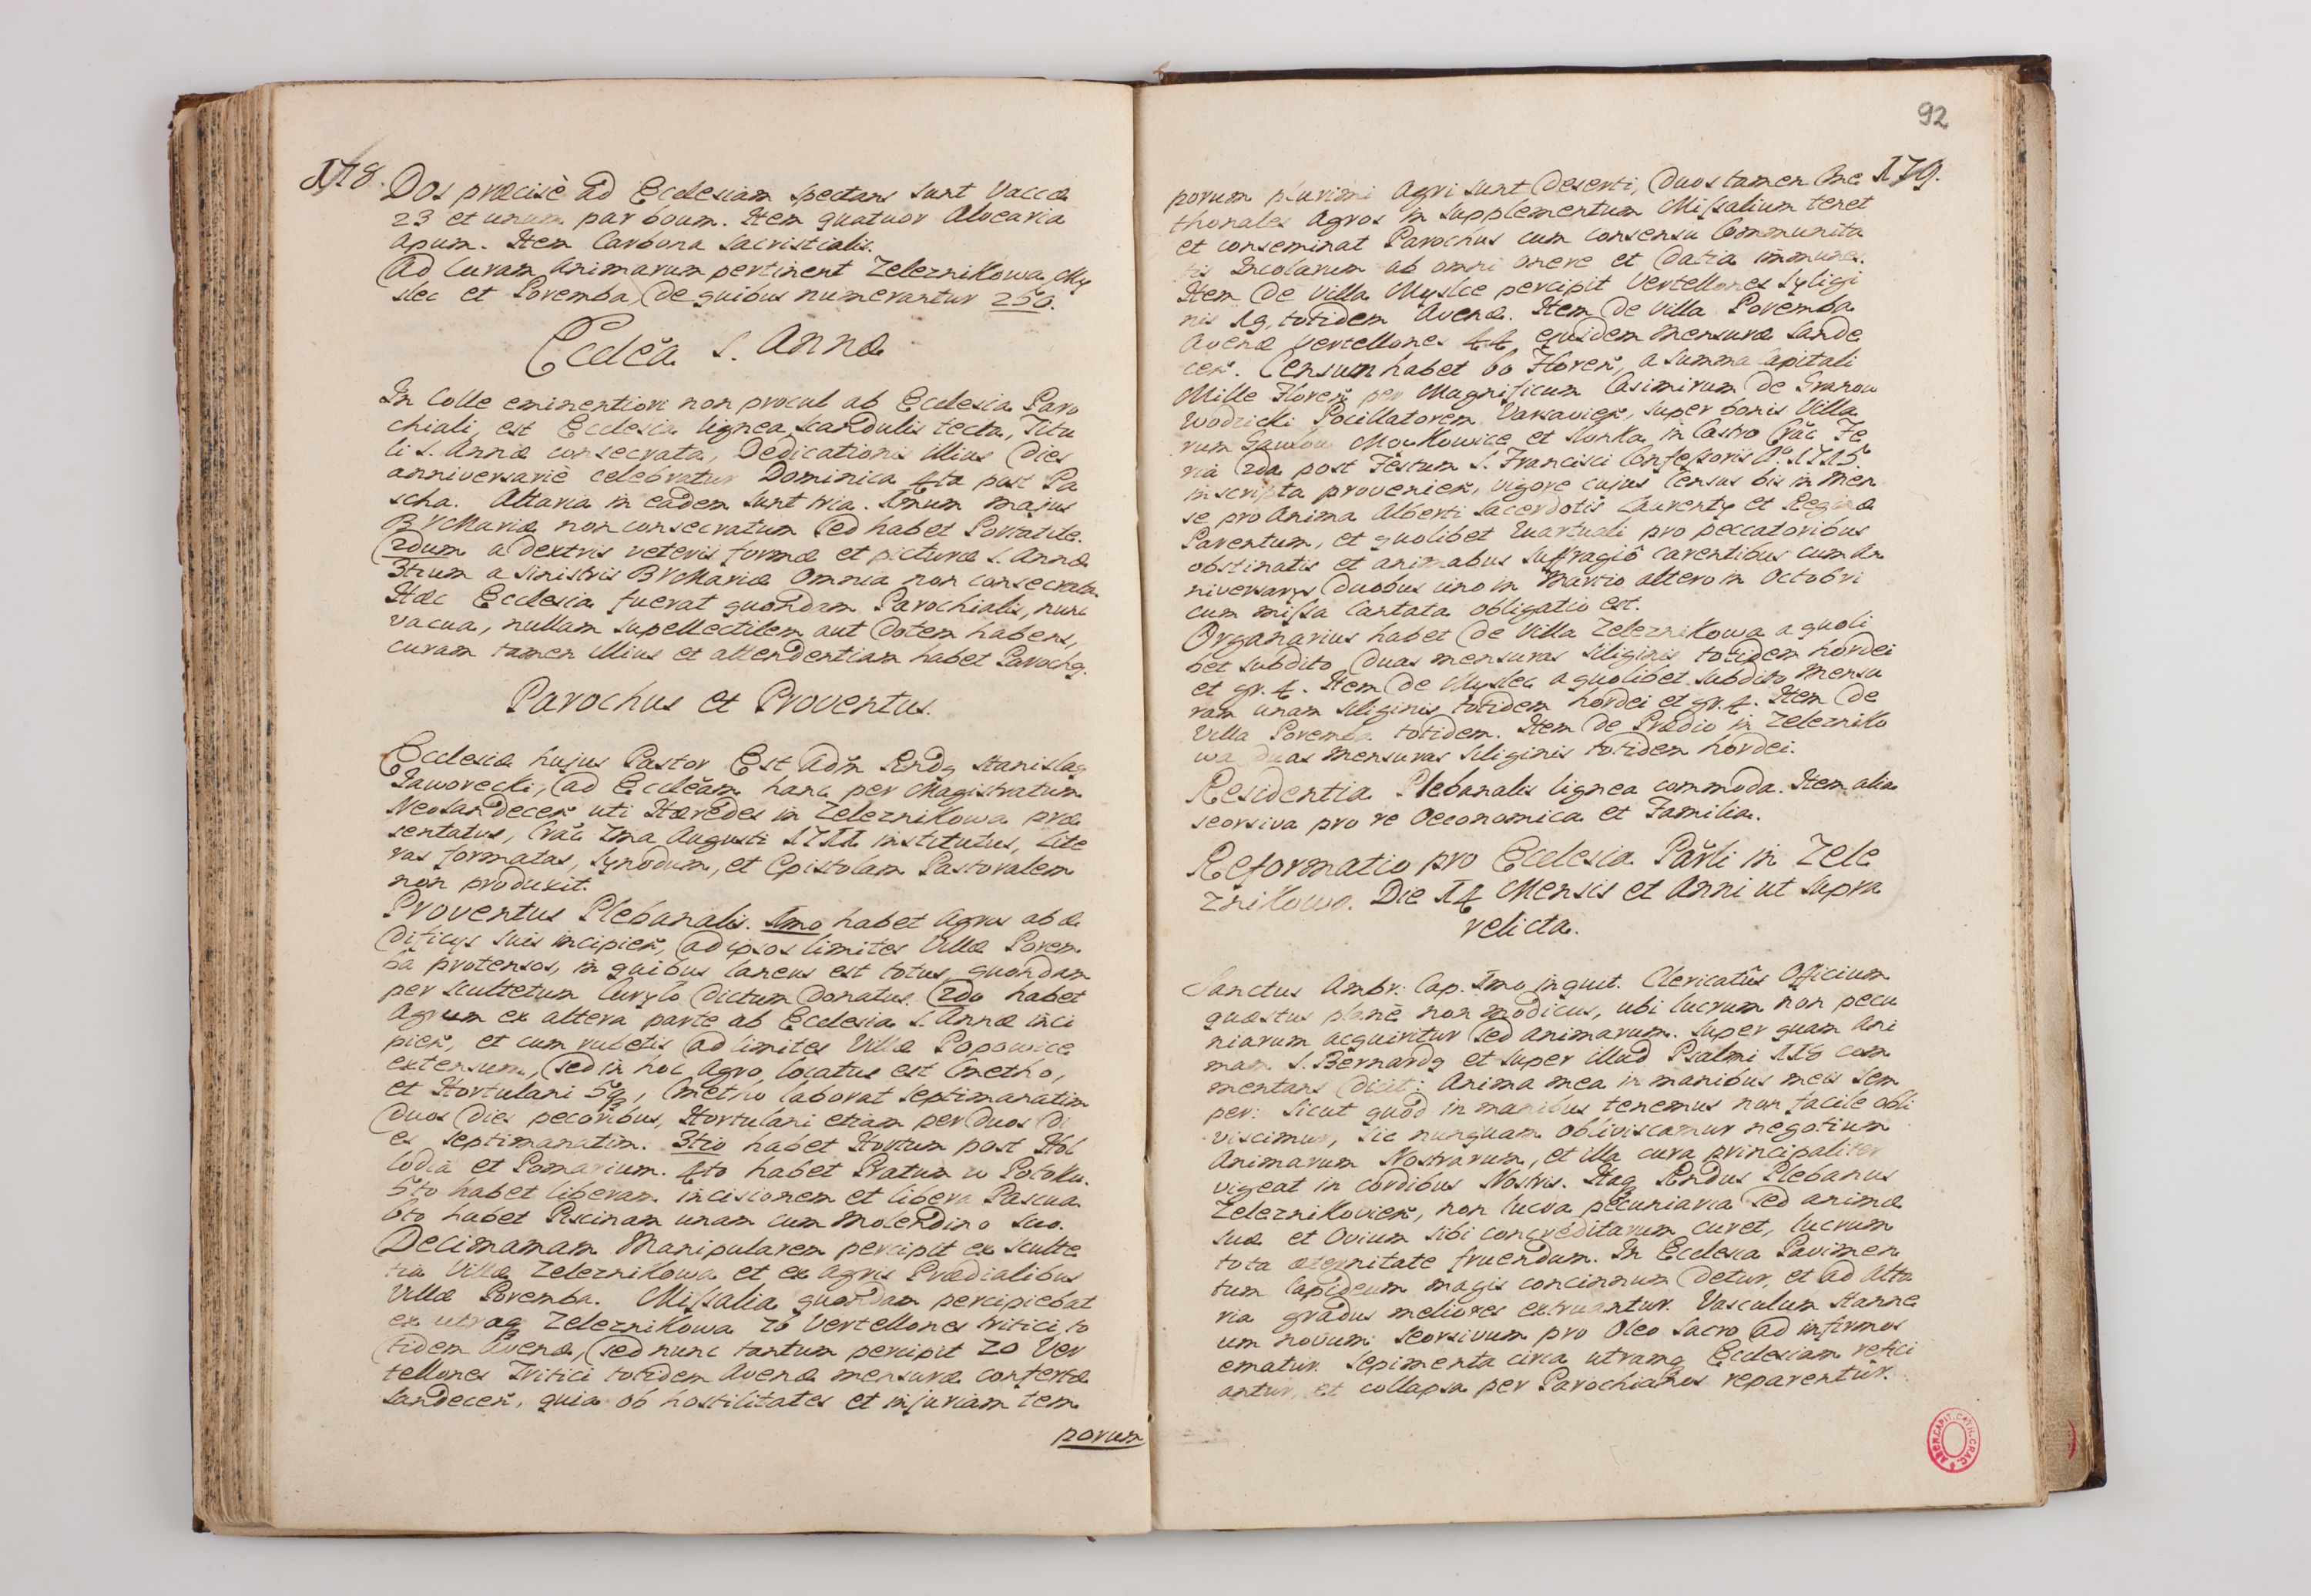 178.
Dos præcisè ad Ecclesiam spectans sunt Vaccæ
23 et unum par boum. Item quatuor Alvearia
Apum. Item Carbona Sacristialis.
Ad Curam Animarum pertinent Zeleznikowa, My
slec et Poremba, de quibus numerantur 250.
Ecclĕa S. Annæ
In Colle eminentiori non procul ab Ecclesia Paro
chiali, est Ecclesia lignea scandulis tecta, Titu
li S. Annæ consecrata, Dedicationis illius Dies
anniversariè celebratur Dominica 4ta post Pa
scha. Altaria in eadem sunt tria. Imum majus
BVMariæ non consecratum sed habet Portatile.
2dum a dextris veteris formæ et picturæ S. Annæ
3tium a sinistris BVMariæ Omnia non consecrata.
Hæc Ecclesia fuerat quondam Parochialis, nunc
vacua, nullam supellectilem aut Dotem habens,
curam tamen illius et attendentiam habet Parochq.
Parochus et Proventus.
Ecclesiæ hujus Pastor Est Adm̃ Rndq Stanislaq
Jaworecki, ad Ecclĕam hanc per Magistratum
Neosandecen̄ uti Hæredes in Zeleznikowa præ
sentatus, Crăc Ima Augusti 1711 institutus, Lite
ras formatas, Synodum, et Epistolam Pastoralem
non produxit.
Proventus Plebanalis. Imo habet Agros ab æ
dificys suis incipien̄, ad ipsos limites Villæ Porem
ba protensos, in quibus laneus est totus quondam
per Scultetum Curylo dictum Donatus. 2do habet
Agrum ex altera parte ab Ecclesia S. Annæ inci
pien̄, et cum rubetis ad limites Villæ Popowice
extensum, sed in hoc Agro locatus est Cmetho,
et Hortulani 5q, Cmetho laborat septimanatim
duos dies pecoribus, Hortulani etiam per duos di
es septimanatim. 3tio habet Hortum post Hol
lodia et Pomarium. 4to habet Pratum w Potoku.
5to habet liberam incisionem et libera Pascua
6to habet Piscinam unam cum Molendino suo.
Decimanam Manipularem percipit ex Sculte
tia Villæ Zeleznikowa et ex Agris Prædialibus
Villæ Poremba. Missalia quondam percipiebat
ex utraq Zeleznikowa 26 Vertellones tritici to
tidem Avenæ, sed nunc tantum percipit 20 Ver
tellones Tritici totidem Avenæ mensuræ confertæ
Sandecen̄, quia ob hostilitates et injuriam tem
porum
92
179.
porum plurimi Agri sunt deserti, Duos tamen Cme
thonales Agros in supplementum Missalium tenet
et conseminat Parochus cum consensu Communita
tis Incolarum ab omni onere et Datia immunes.
Item de Villa Myslce percipit Vertellones Syligi
nis 19, totidem Avenæ. Item de Villa Poremba
Avenæ Vertellones 44 ejusdem mensuræ Sande
cen̄. Censum habet 60 Floren̄, a summa Capitali
Mille Floren̄ per Magnificum Casimirum de Granow
Wodzicki Pocillatorem Varsavien̄, super bonis Villa
rum Gawlow Moykowice et Slonka in Castro Crăc Fe
ria 2da post Festum S. Francisci Confessoris Aº 1715.
inscripta provenien̄, vigore cujus Census bis in Men
se pro Anima Alberti Sacerdotis Laurenty et Reginæ
Parentum, et quolibet Quartuali pro peccatoribus
obstinatis et animabus suffragiô carentibus cum An
niversarys duobus uno in Martio altero in Octobri
cum missa Cantata obligatio est.
Organarius habet de Villa Zeleznikowa a quoli
bet subdito duas mensuras siliginis totidem hordei
et gr. 4. Item de Myslec a quolibet subdito Mensu
ram unam siliginis totidem hordei et gr. 4. Item de
Villa Poremba totidem. Item de Prædio in Zelezniko
wa duas mensuras siliginis totidem hordei.
Residentia Plebanalis lignea commoda. Item alia
seorsiva pro re Oeconomica et Familia.
Reformatio pro Ecclesia Parli in Zele
znikowa. Die 14 Mensis et Anni ut supra
relicta.
Sanctus Ambr: Cap. Imo inquit. Clericatûs Officium
quæstus planè non modicus, ubi lucrum non pecu
niarum acquiritur sed Animarum. Super quam Ani
mam S. Bernardq et super illud Psalmi 118 com
mentans dicit: Anima mea in manibus meis sem
per: Sicut quod in manibus tenemus non facile obli
viscimur, sic nunquam obliviscamur negotium
Animarum Nostrarum, et illa cura principaliter
vigeat in cordibus Nostris. Itaq Rndus Plebanus
Zeleznikovien̄, non lucra pecuniaria sed animæ
suæ et Ovium sibi concreditarum curet, lucrum
tota æternitate fruendum. In Ecclesia Pavimen
tum lapideum magis concinnum detur, et ad Alta
ria gradus meliores extruantur. Vasculum stanne
um novum seorsivum pro Oleo Sacro ad infirmos
ematur. Sepimenta circa utramq Ecclesiam refici
antur, et collapsa per Parochianos reparentur.